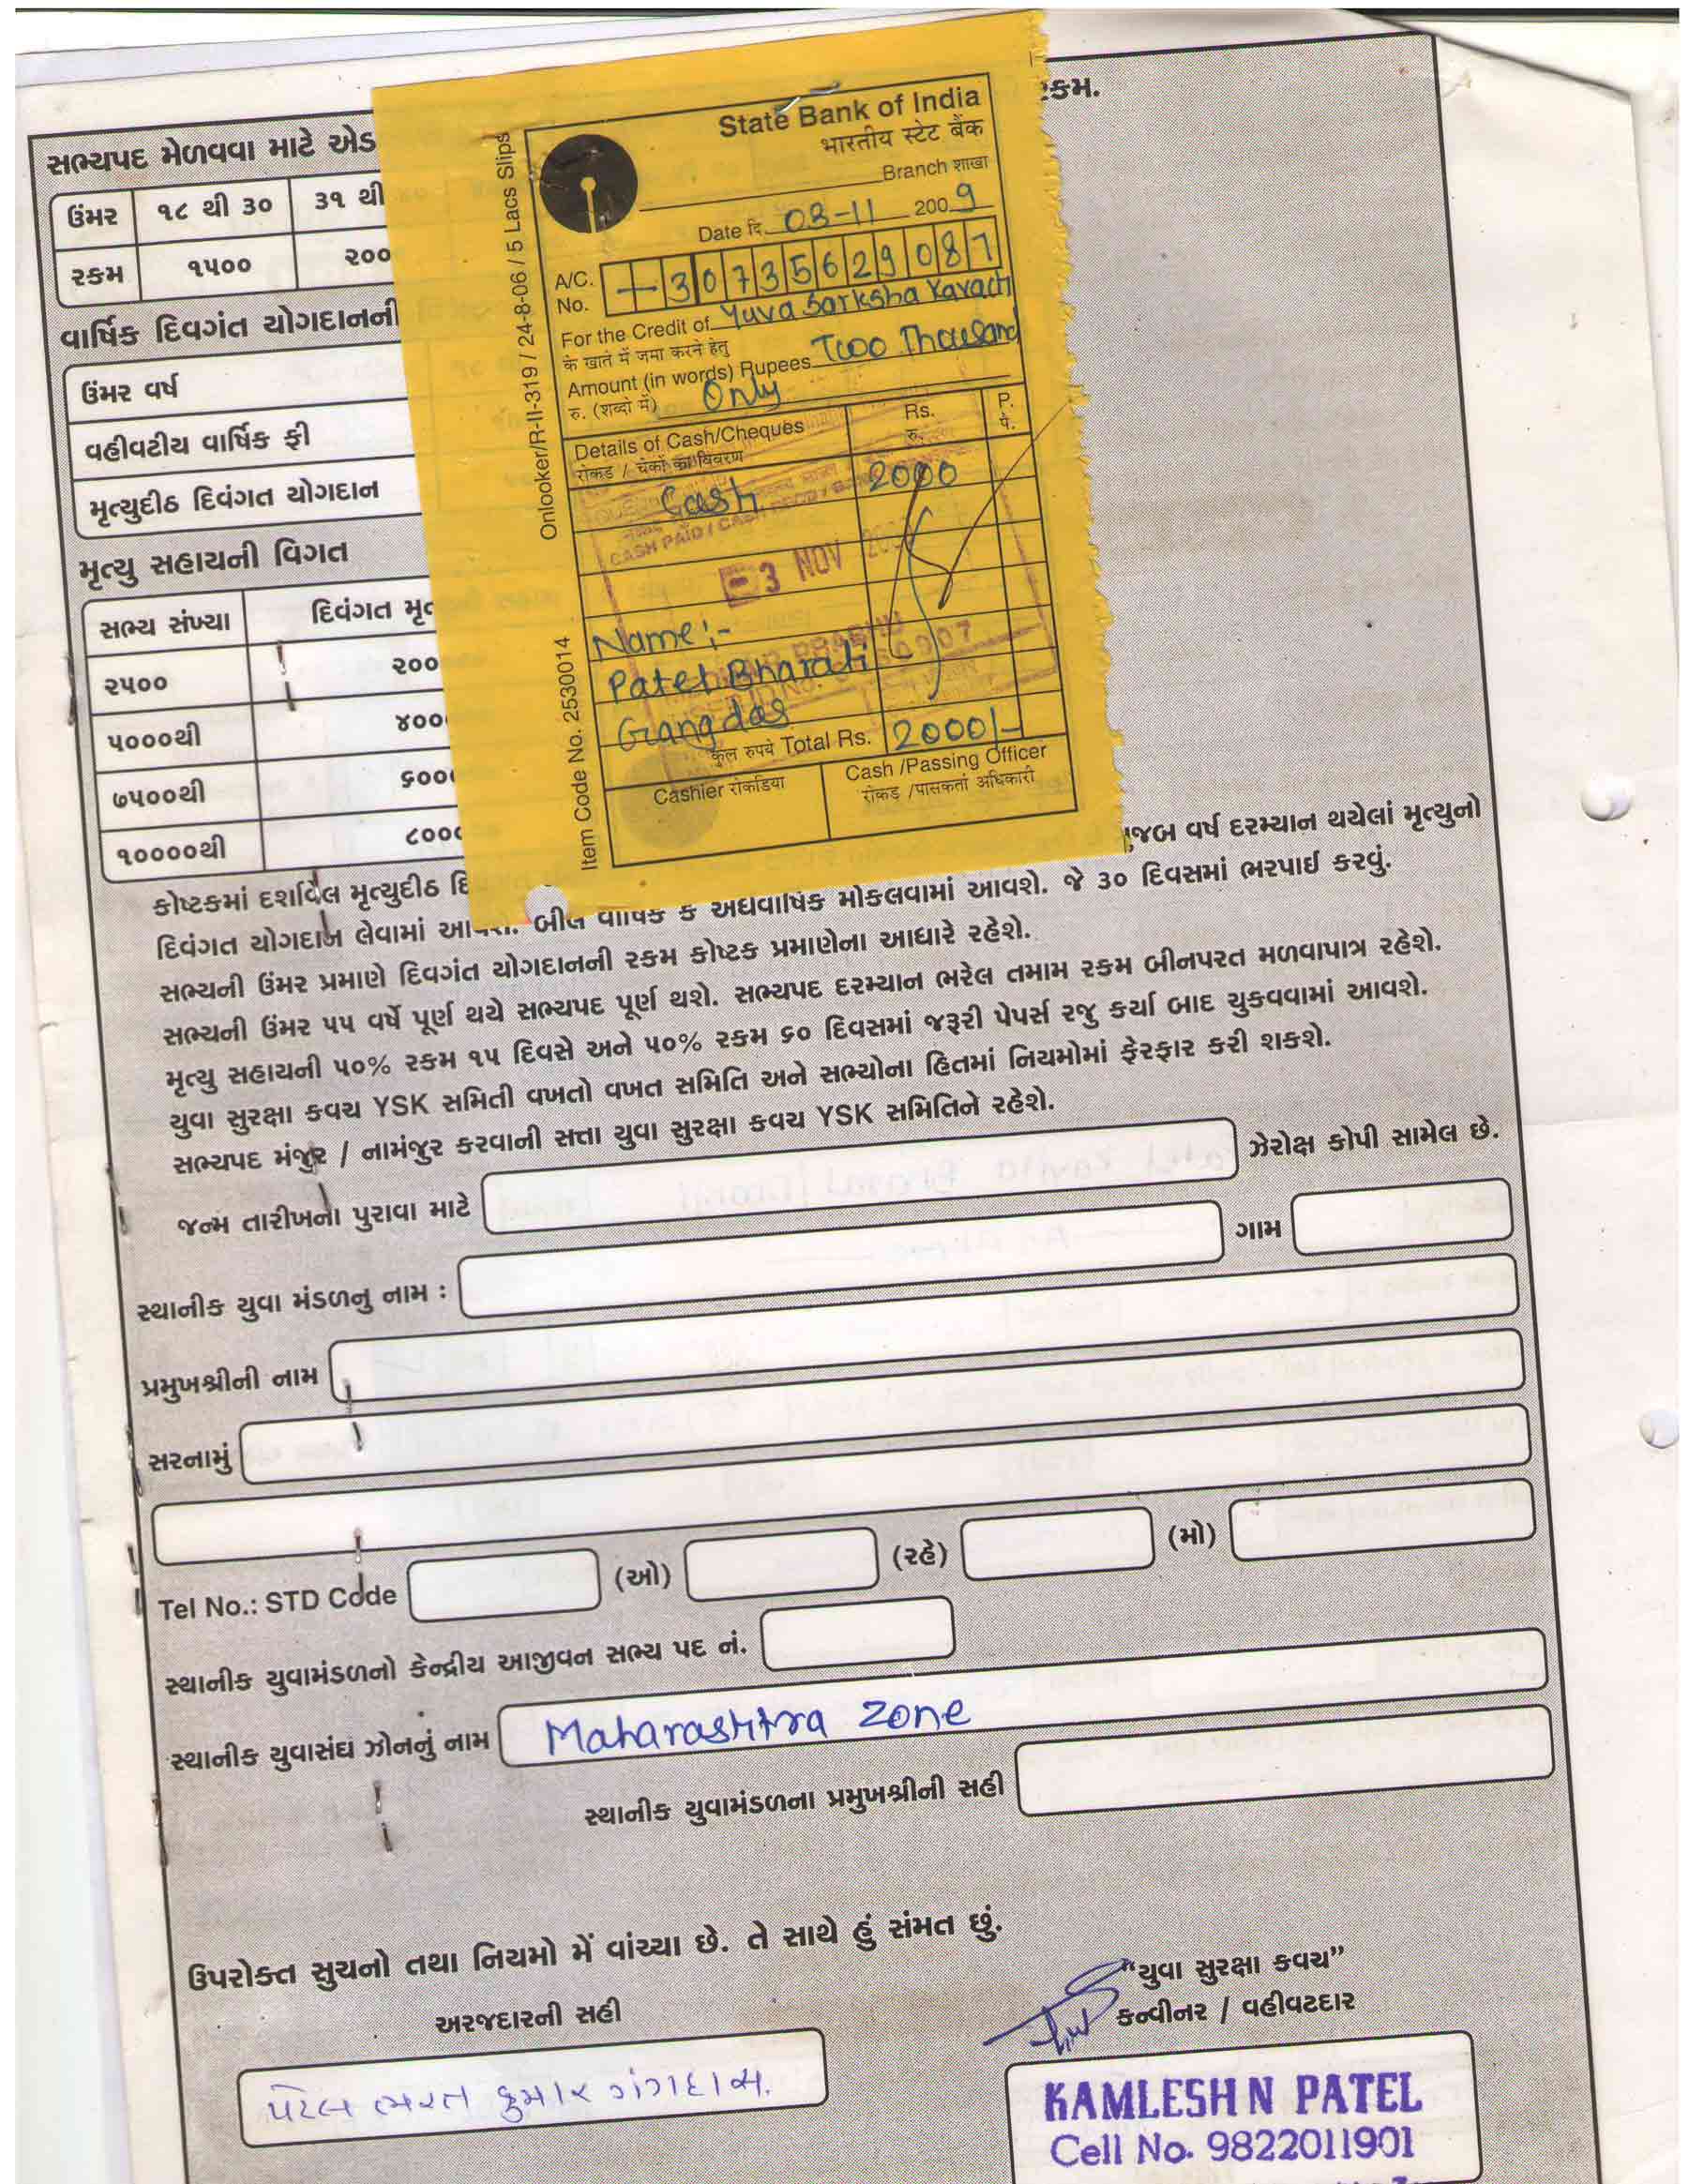 રકમ.
સભ્યપદ મેળવવા માટે એડ
ઉંમર ૧૮ થી ૩૦ ૩૧ થી
રકમ ૧૫૦૦ ૨૦૦
વાર્ષિક દિવગંત યોગદાનની
ઉંમર વર્ષ
વહીવટીય વાર્ષિક ફી
મૃત્યુદીઠ દિવંગત યોગદાન
મૃત્યુ સહાયની વિગત
સભ્ય સંખ્યા દિવંગત મૃ
૨૫૦૦ ૨૦૦
૫૦૦૦થી ૪૦૦
૭૫૦૦થી ૬૦૦
૧૦૦૦૦થી ૮૦૦
Onlooker/R-II-319 / 24-8-06 / 5 Lacs Slips
Item Code No. 2530014
State Bank of India
भारतीय स्टेट बैंक
Branch शाखा
Date दि. 03-11 2009
A/C. No. 30735629087
For the Credit of Yuva Sarksha Kavach
के खाते में जमा करने हेतु
Amount (in words) Rupees Two Thousand
रु. (शब्दो में) Only
Details of Cash/Cheques Rs. P.
रोकड / चेकों का विवरण रु. पै.
Cash 2000
CASH PAID / CASH
-3 NOV
Name:-
Patel Bharat
Gangdas
कुल रुपये Total Rs. 2000/-
Cashier रोकडिया Cash /Passing Officer
रोकड /पासकर्ता अधिकारी
કોષ્ટકમાં દર્શાવેલ મૃત્યુદીઠ દિ જબ વર્ષ દરમ્યાન થયેલાં મૃત્યુનો
દિવંગત યોગદાન લેવામાં આવશે. બીલ વાર્ષિક કે અર્ધવાર્ષિક મોકલવામાં આવશે. જે ૩૦ દિવસમાં ભરપાઈ કરવું.
સભ્યની ઉંમર પ્રમાણે દિવગંત યોગદાનની રકમ કોષ્ટક પ્રમાણેના આધારે રહેશે.
સભ્યની ઉંમર ૫૫ વર્ષે પૂર્ણ થયે સભ્યપદ પૂર્ણ થશે. સભ્યપદ દરમ્યાન ભરેલ તમામ રકમ બીનપરત મળવાપાત્ર રહેશે.
મૃત્યુ સહાયની ૫૦% રકમ ૧૫ દિવસે અને ૫૦% રકમ ૬૦ દિવસમાં જરૂરી પેપર્સ રજુ કર્યા બાદ ચુકવવામાં આવશે.
યુવા સુરક્ષા કવચ YSK સમિતી વખતો વખત સમિતિ અને સભ્યોના હિતમાં નિયમોમાં ફેરફાર કરી શકશે.
સભ્યપદ મંજુર / નામંજુર કરવાની સત્તા યુવા સુરક્ષા કવચ YSK સમિતિને રહેશે.
જન્મ તારીખના પુરાવા માટે ઝેરોક્ષ કોપી સામેલ છે.
સ્થાનીક યુવા મંડળનુ નામ : ગામ
પ્રમુખશ્રીની નામ
સરનામું
Tel No.: STD Code (ઓ) (રહે) (મો)
સ્થાનીક યુવામંડળનો કેન્દ્રીય આજીવન સભ્ય પદ નં.
સ્થાનીક યુવાસંઘ ઝોનનું નામ Maharashtra zone
સ્થાનીક યુવામંડળના પ્રમુખશ્રીની સહી
ઉપરોક્ત સુચનો તથા નિયમો મેં વાંચ્યા છે. તે સાથે હું સંમત છું.
અરજદારની સહી
પટેલ ભરત કુમાર ગંગદાસ.
“યુવા સુરક્ષા કવચ”
કન્વીનર / વહીવટદાર
KAMLESH N PATEL
Cell No. 9822011901